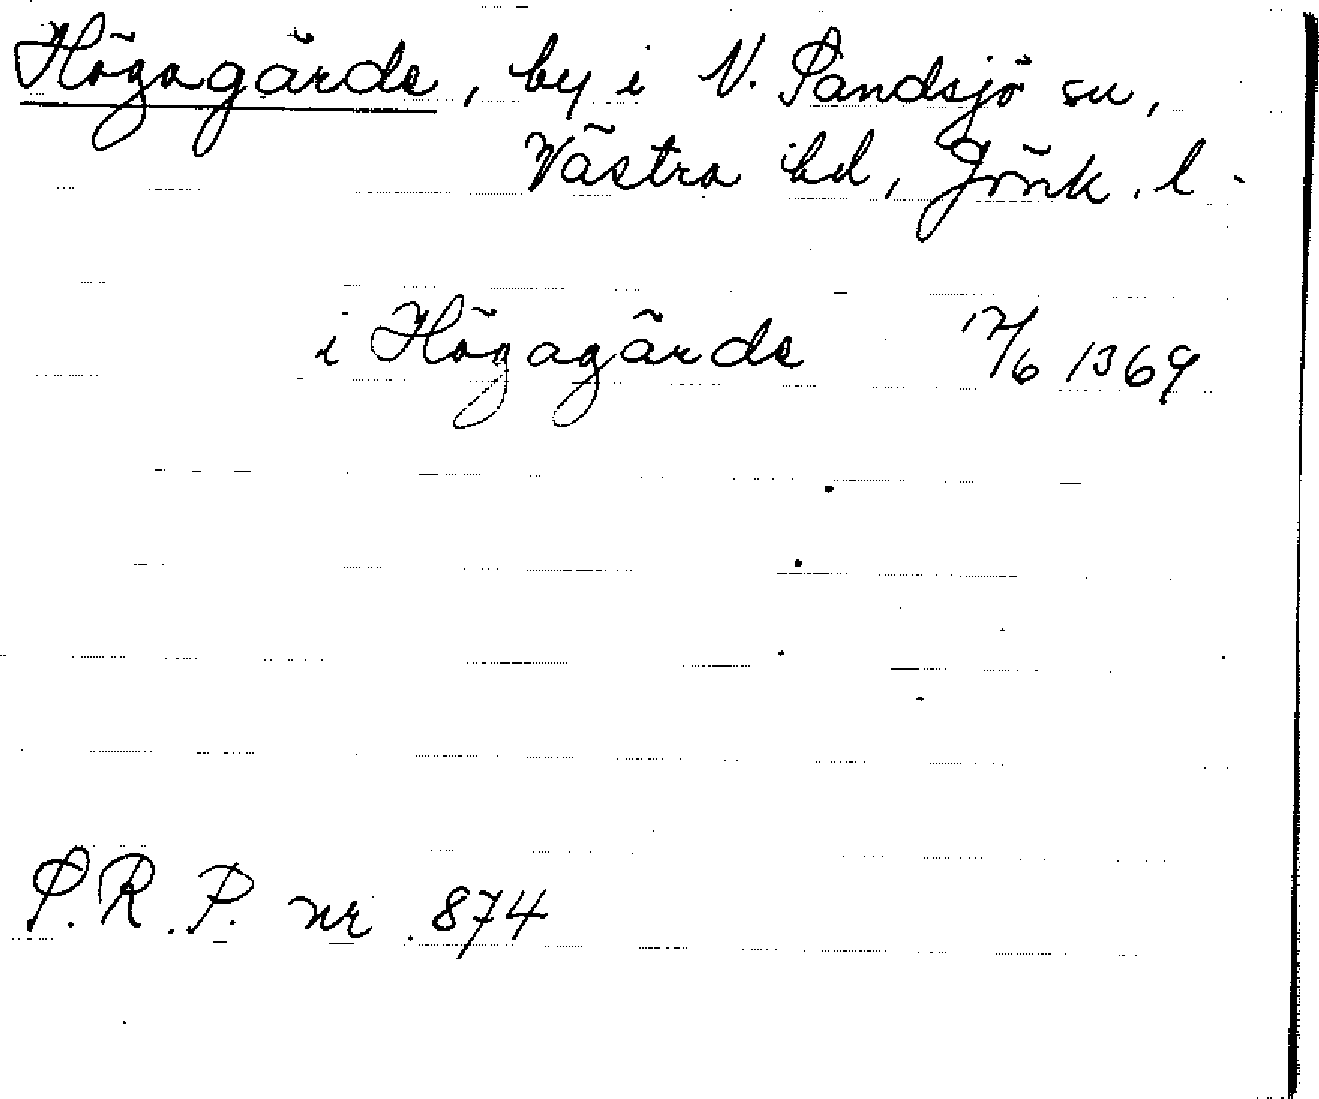 Högagärde, by i N. Sandsjö sn,
Västra hd, Jönk. l.
i Högagärde 12/6 1369
S.R.P. nr 874